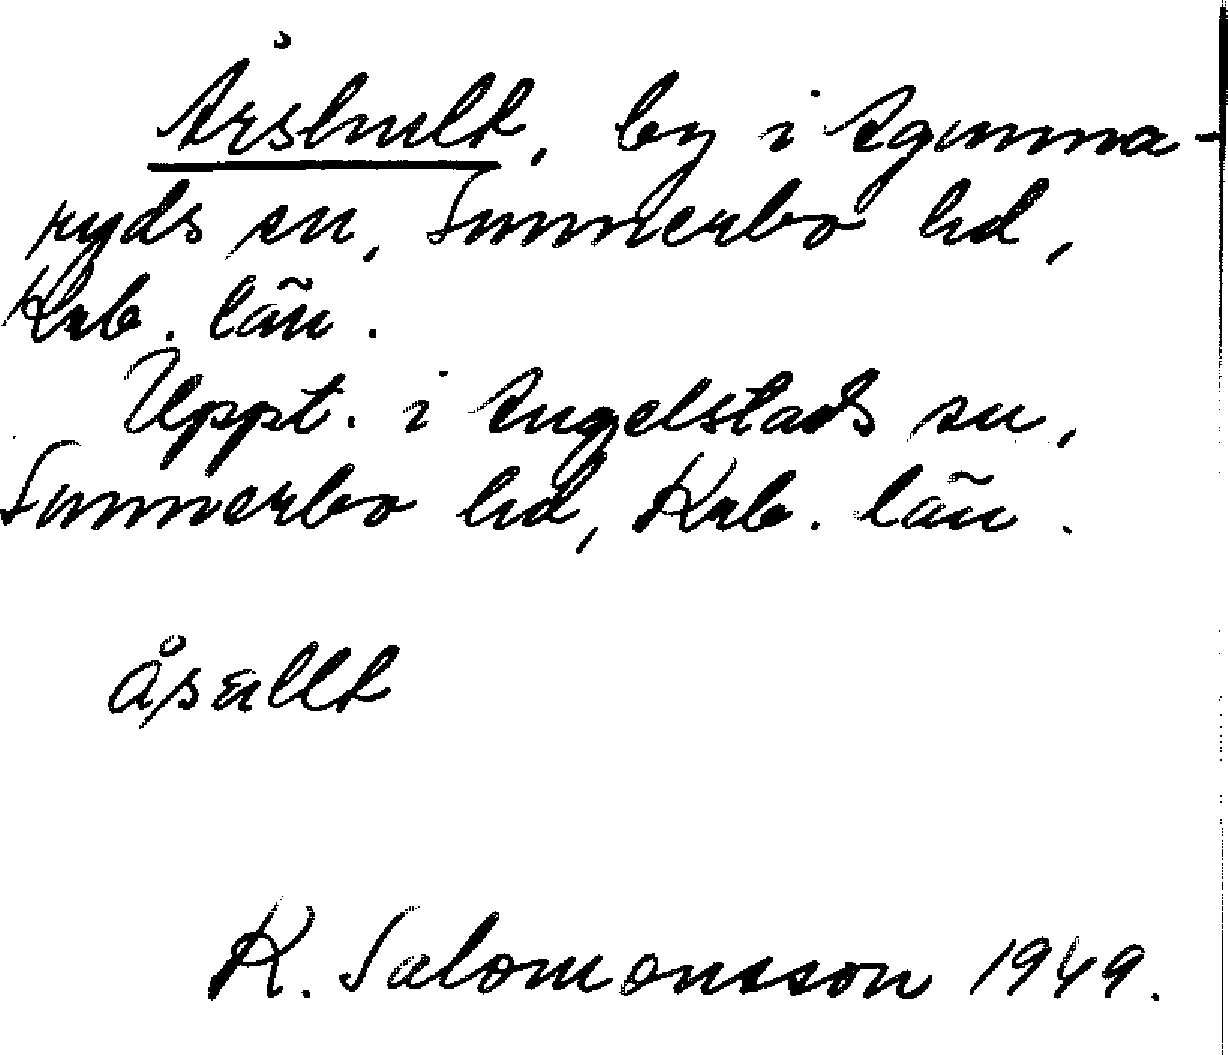 Årshult, by i Agunna-
ryds sn, Sunnerbo hd,
Krb. län.
Uppt. i Angelstads sn,
Sunnerbo hd, Krb. län.
åsællt
K. Salomonsson 1949.